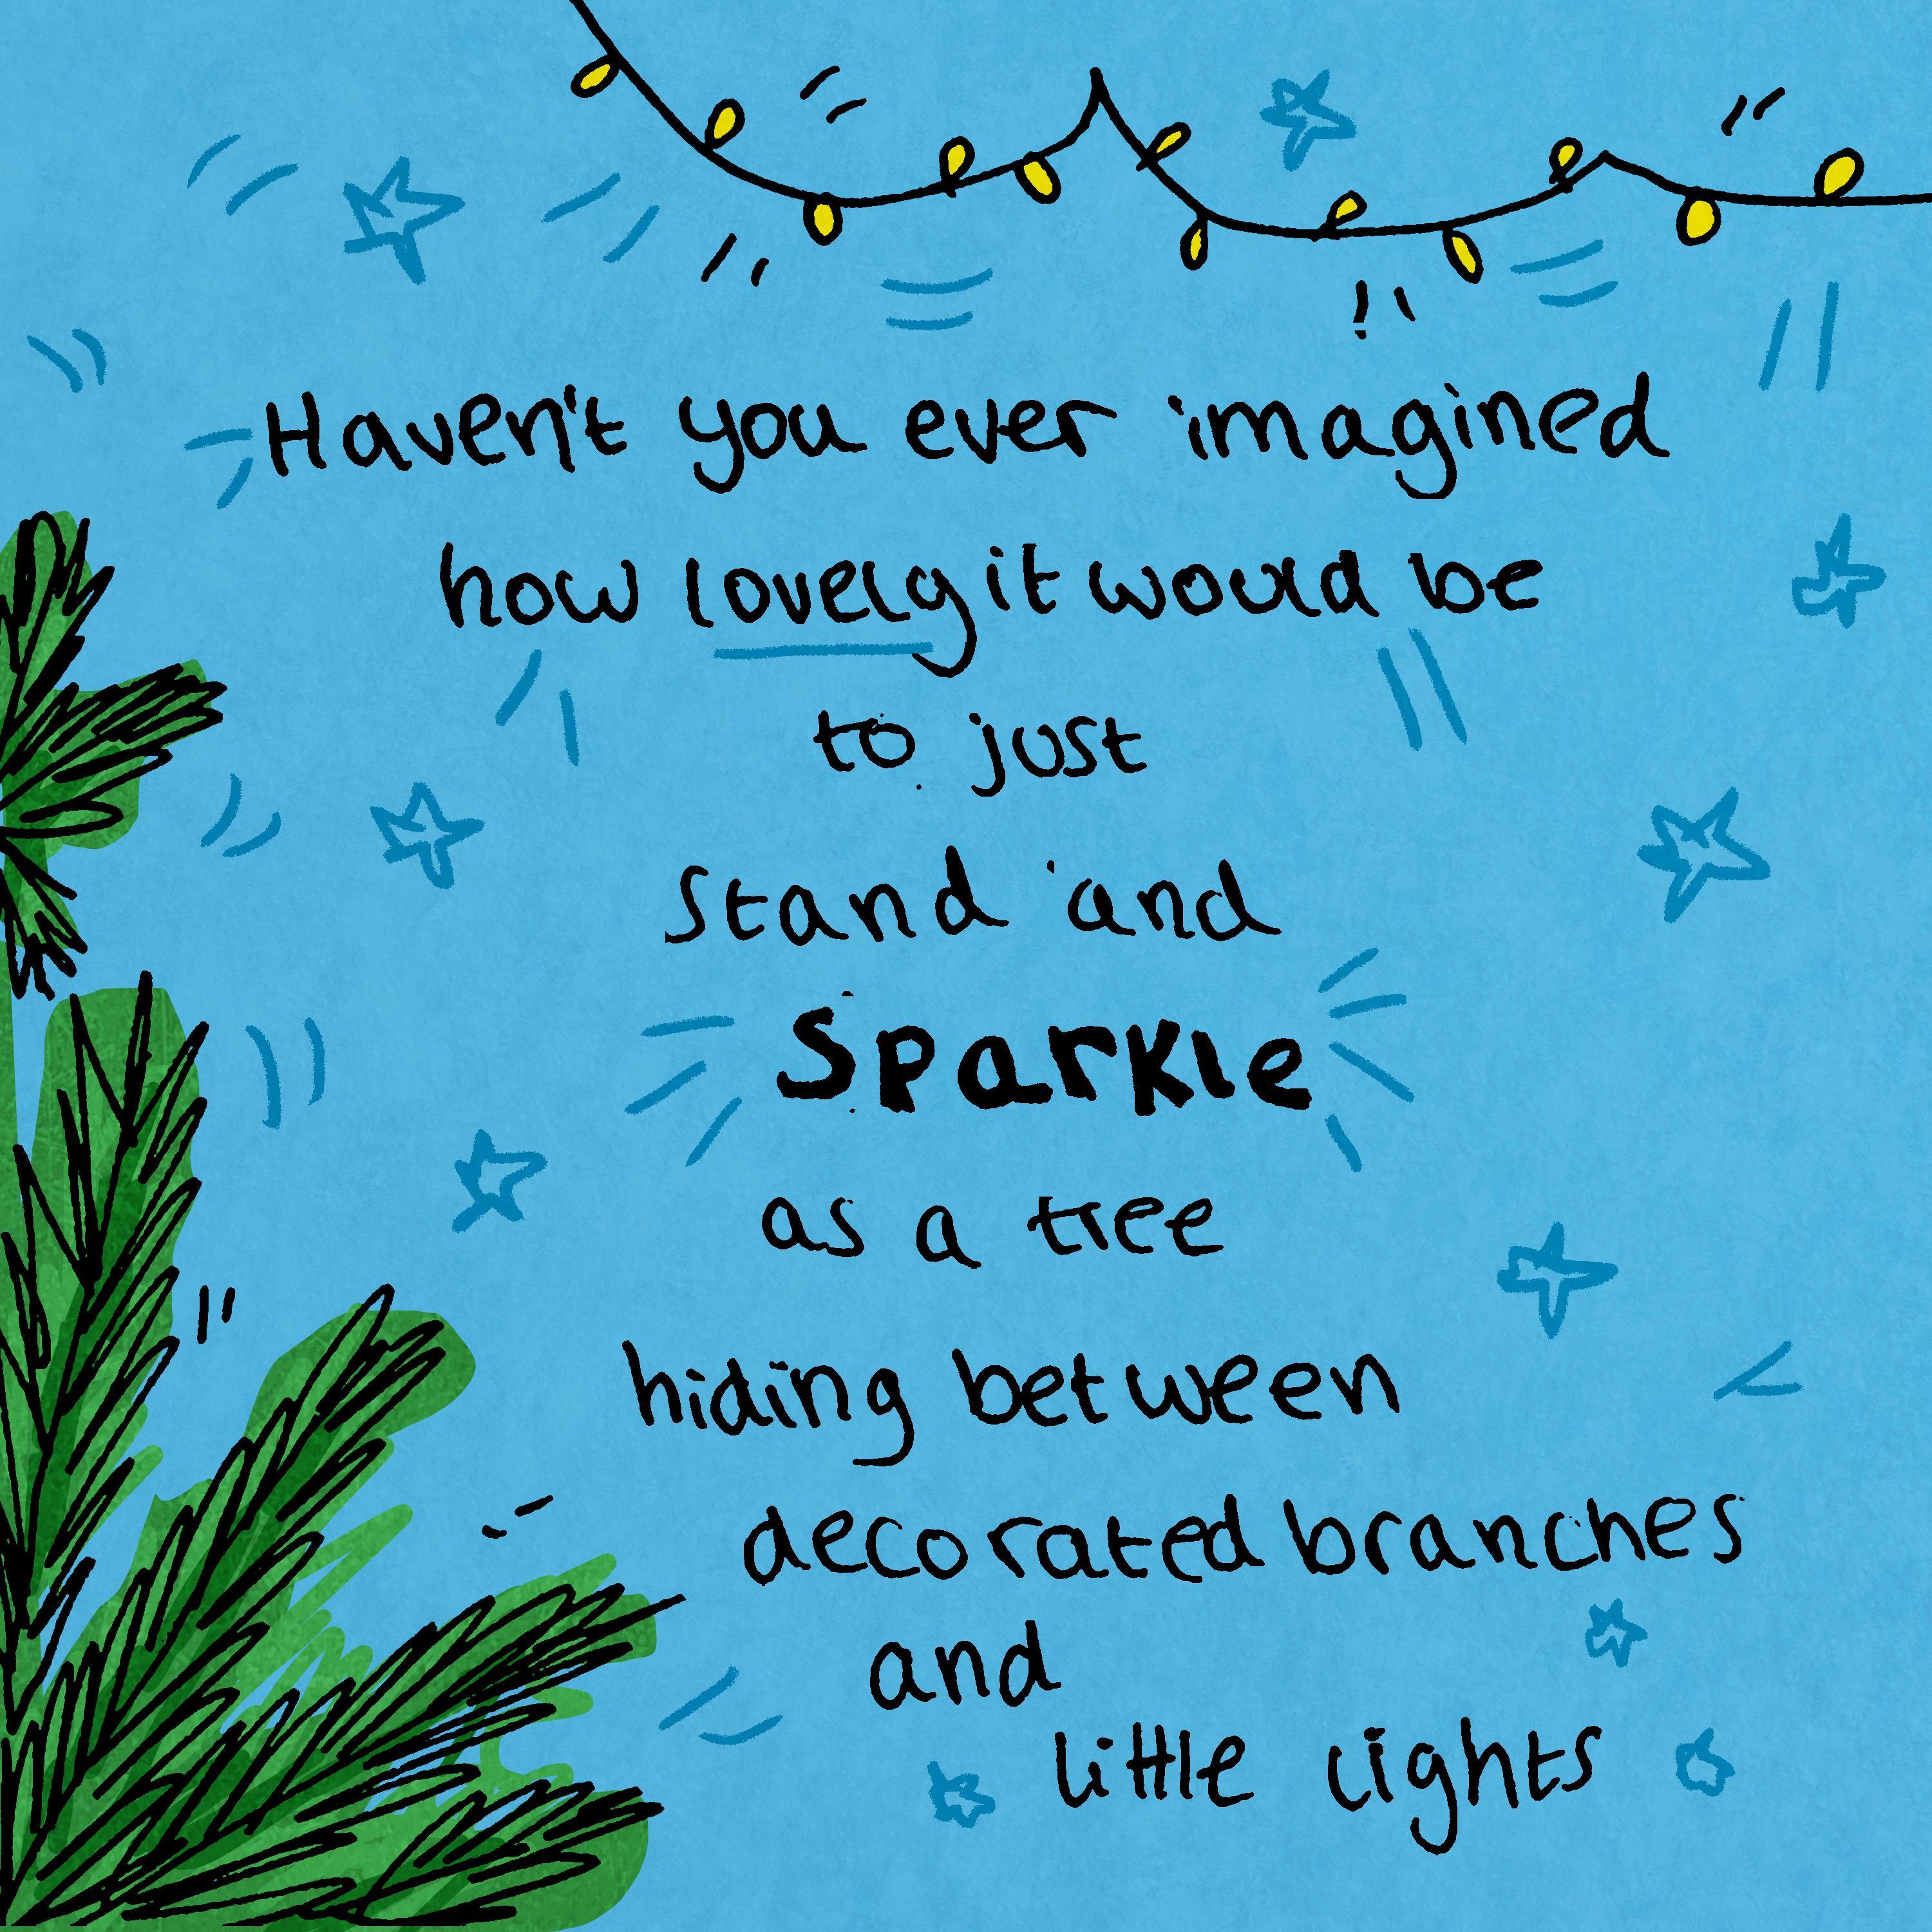 Haven't you ever imagined
how lovely it would be
to just
stand and
Sparkle
as a tree
hiding between
decorated branches
and
little lights